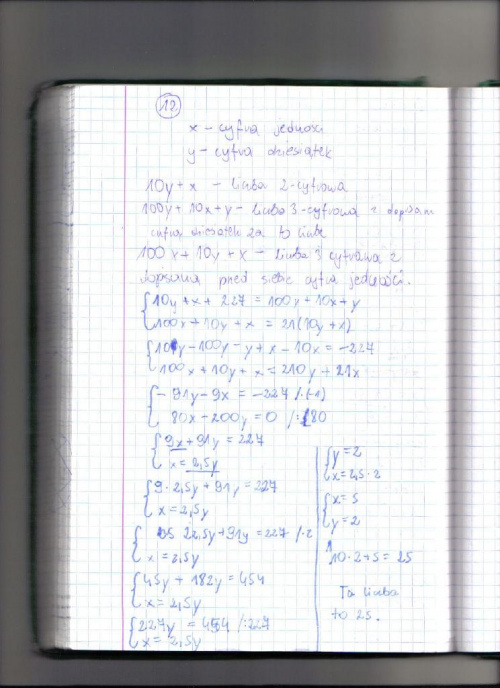 12
x - cyfra jedności
y - cyfra dziesiątek
10y + x - liczba 2-cyfrowa
100y + 10x + y - liczba 3-cyfrowa z dopisaną
cyfrą dziesiątek za tą liczbą
100x + 10y + x - liczba 3 cyfrowa z
dopisaną przed siebie cyfrą jedności.
10y + x + 227 = 100y + 10x + y
100x + 10y + x = 21(10y + x)
10y - 100y - y + x - 10x = -227
100x + 10y + x = 210y + 21x
- 91y - 9x = -227 /·(-1)
80x - 200y = 0 /:80
9x + 91y = 227
x = 2,5y
9 · 2,5y + 91y = 227
x = 2,5y
22,5y + 91y = 227 /·2
x = 2,5y
45y + 182y = 454
x = 2,5y
227y = 454 /:227
x = 2,5y
y = 2
x = 2,5 · 2
x = 5
y = 2
10 · 2 + 5 = 25
Ta liczba
to 25.